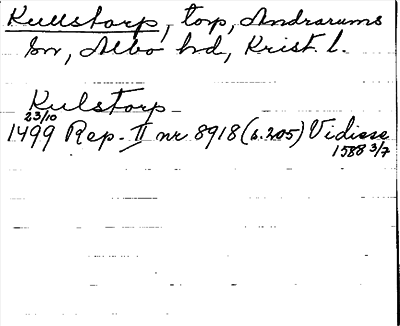 Kullstorp, torp, Andrarums
sn, Albo hd, Krist. l.
Kulstorp
23/10
1499 Rep. II nr 8918 (s. 205) Vidisse
1588 3/7